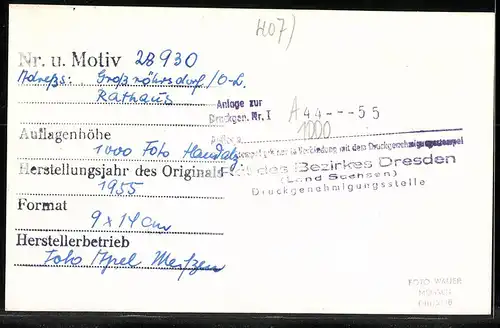 H07)
Nr. u. Motiv 28930
Adresse: Großröhrsdorf/O-L.
Rathaus
Anlage zur
Druckgen. Nr. I A 44 --- 55
Auflage 1000
Auflagenhöhe
1000 Foto Handabz
in Verbindung mit dem Druckgenehmigungsstempel
Herstellungsjahr des Originals
Rat des Bezirkes Dresden
1955
(Land Sachsen)
Druckgenehmigungsstelle
Format
9 x 14 cm
Herstellerbetrieb
Foto Apel Meißen
FOTO